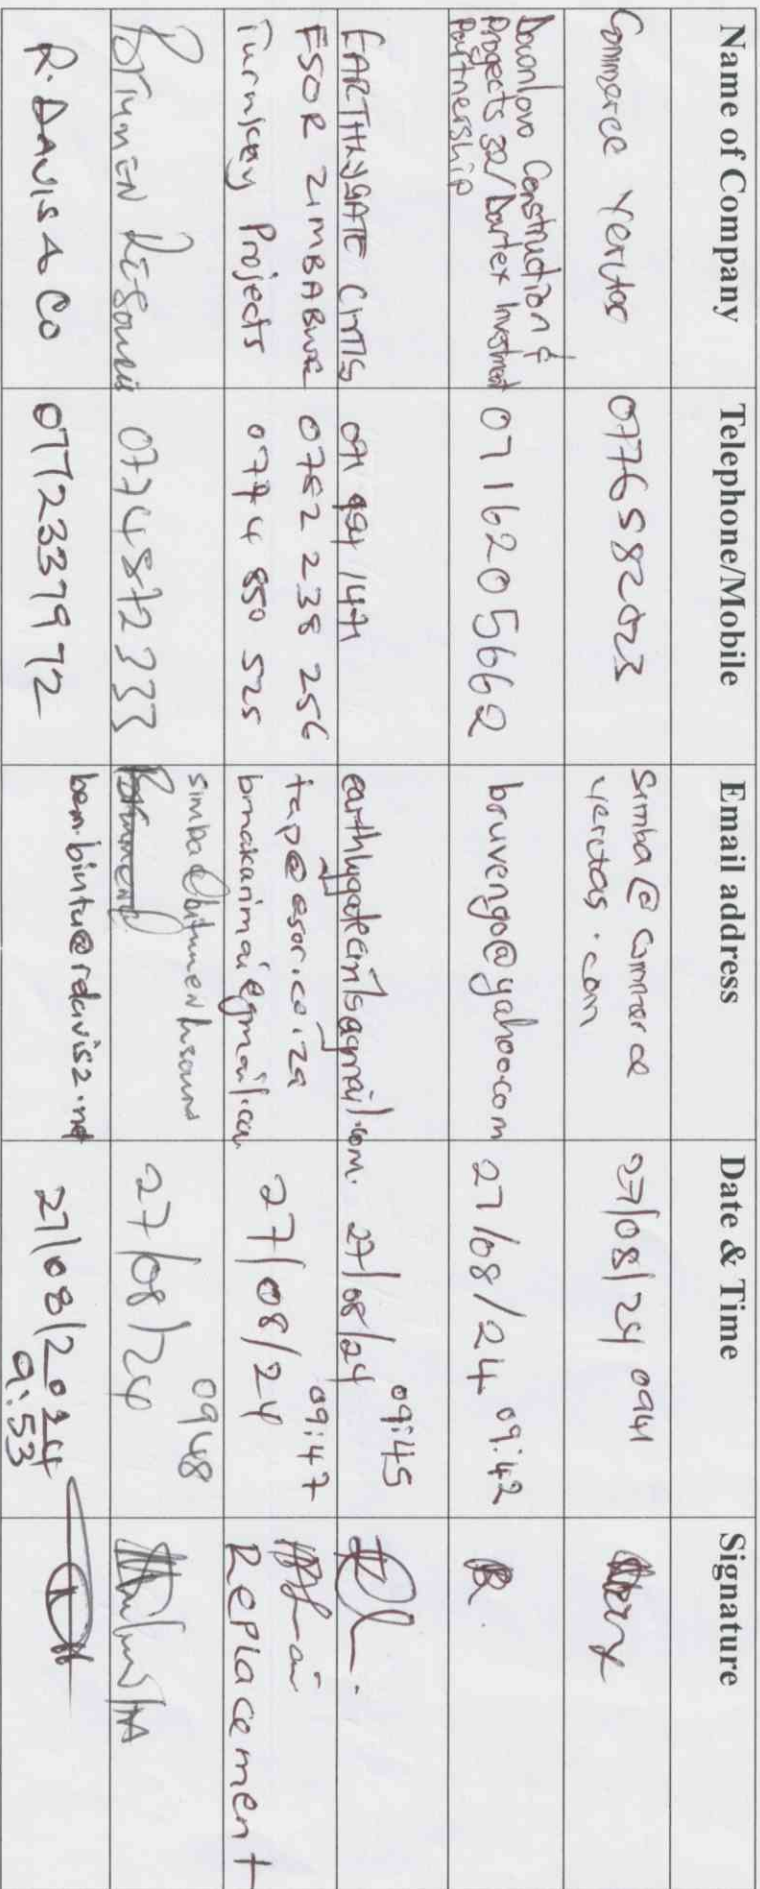 Name of Company Telephone/Mobile Email address Date & Time Signature
Commerce Veritas 0776582023 Simba@commerce 27/08/24 0941
veritas.com
Downlovo Construction &
Progects 32/Dartex Investment
Partnership 0716205662 bruvengo@yahoo.com 27/08/24 09:42
EARTHLYGATE CMTLS 091 994 1471 earthlygatecmtls@gmail.com. 27/08/24 09:45
ESOR ZIMBABWE 0782 238 256 tap@esor.co.za 09:47
Turnkey Projects 0774 850 525 bmakarimai@gmail.com 27/08/24 Replacement
Bitumen Resources 0774872333 simba@bitumen 27/08/24 0948
R. DAVIS & CO 0772337972 bem.bintu@rdavis2.net 27/08/2024
9:53